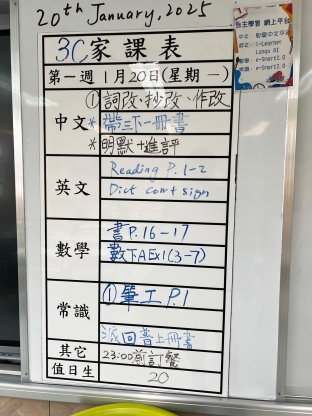 20th January, 2025
3C家課表
第一週 1月20日(星期一)
中文
①詞改、抄改、作改
*帶三下一冊書
*明默+進評
英文
Reading P.1-2
Dict corr + sign
數學
書P.16-17
數下A Ex1(3-7)
常識
①筆工P.1
派回普上冊書
其它
23:00前訂餐
值日生
20
自主學習 網上平台